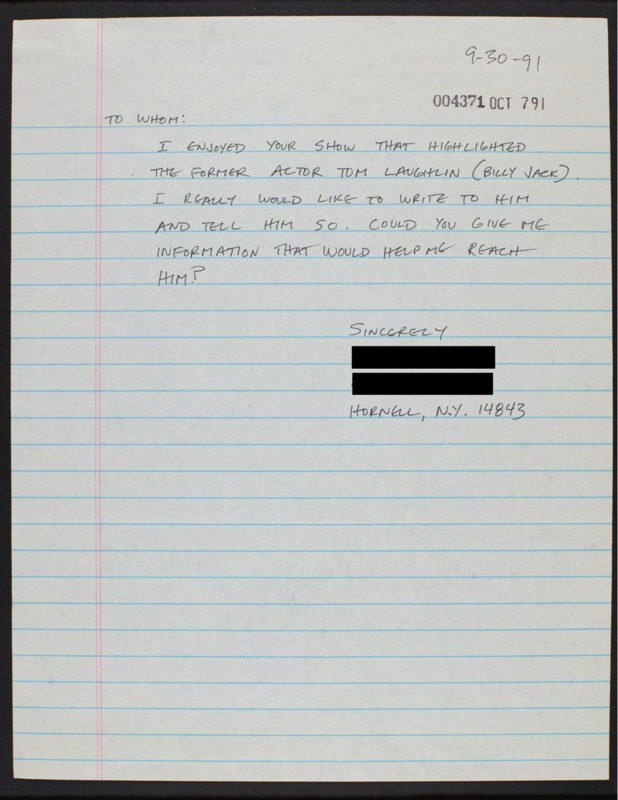 9-30-91
004371 OCT 791
TO WHOM:
I ENJOYED YOUR SHOW THAT HIGHLIGHTED
THE FORMER ACTOR TOM LAUGHLIN (BILLY JACK).
I REALLY WOULD LIKE TO WRITE TO HIM
AND TELL HIM SO. COULD YOU GIVE ME
INFORMATION THAT WOULD HELP ME REACH
HIM?
SINCERELY
HORNELL, N.Y. 14843